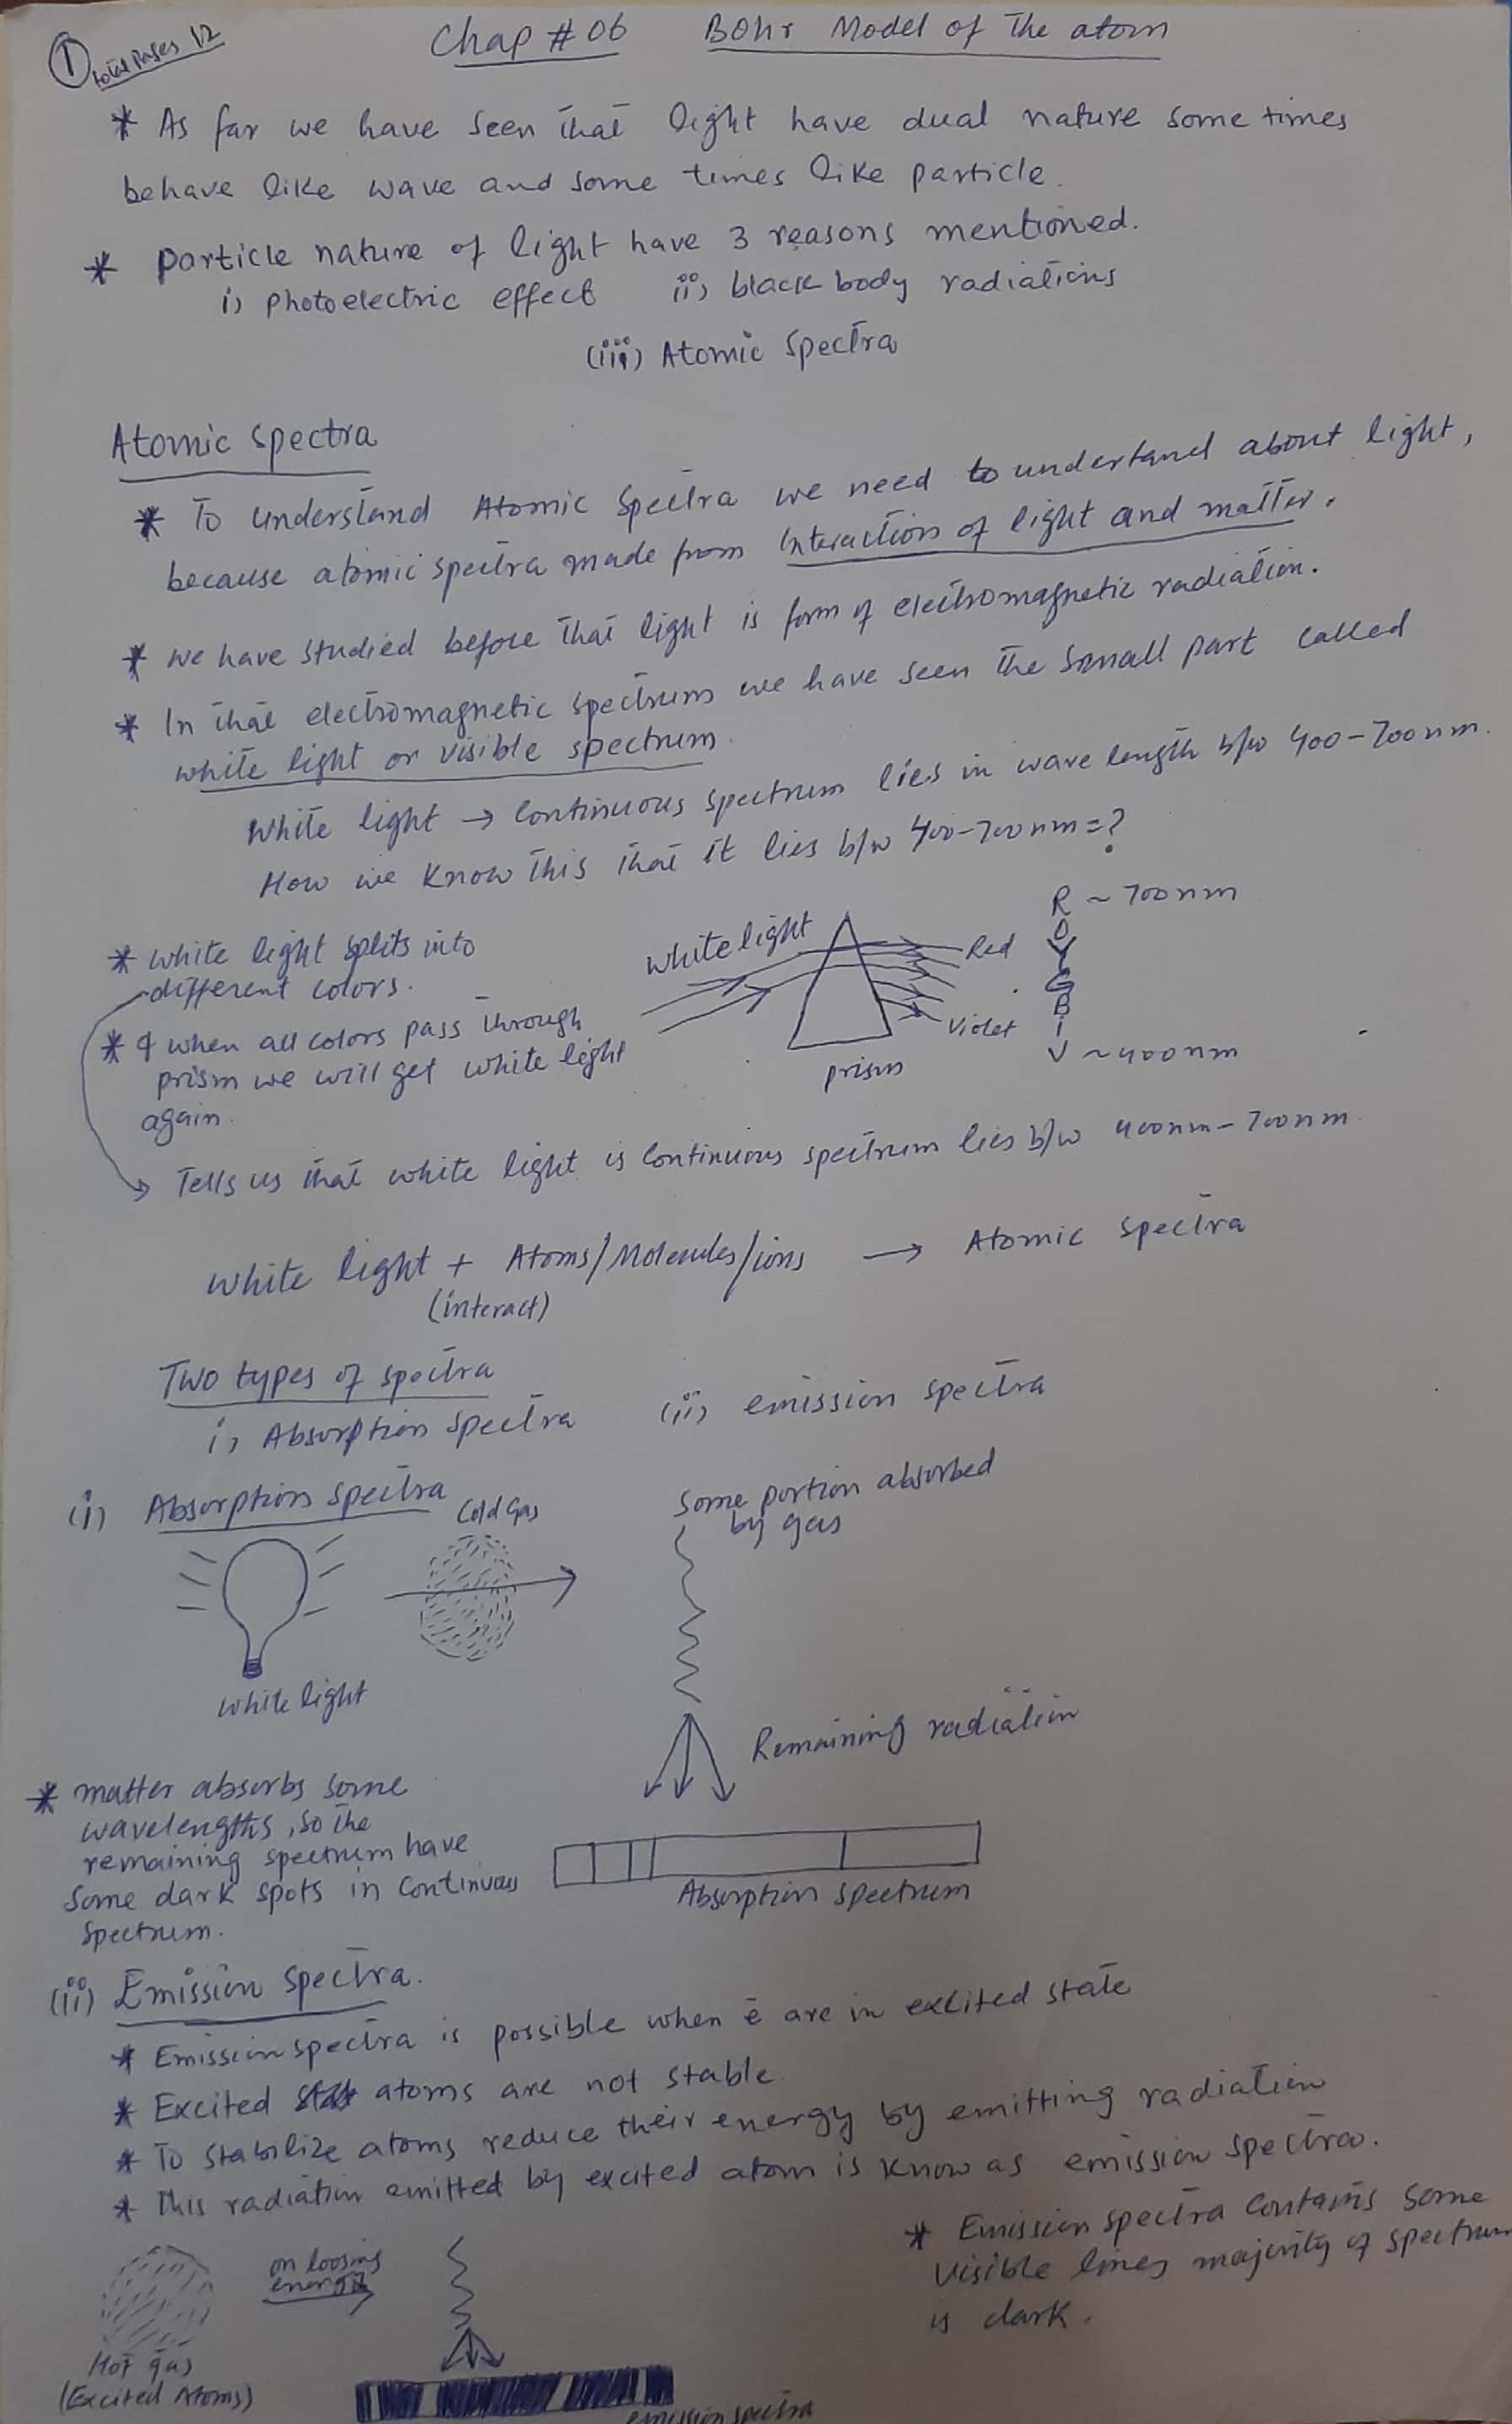 ① total pages 12
Chap # 06 Bohr Model of The atom
* As far we have seen that light have dual nature some times
behave like wave and some times like particle.
* particle nature of light have 3 reasons mentioned.
i) photoelectric effect ii) black body radiations
(iii) Atomic Spectra
Atomic Spectra
* To understand Atomic Spectra we need to undertand about light,
because atomic spectra made from Interaction of light and matter.
* we have studied before that light is form of electromagnetic radiation.
* In that electromagnetic spectrum we have seen the small part called
white light or visible spectrum.
White light → Continuous spectrum lies in wave length b/w 400-700nm.
How we know this that it lies b/w 400-700nm=?
* white light splits into
different colors.
* & when all colors pass through
prism we will get white light
again.
white light
Red
Violet
prism
R ~ 700nm
O
Y
G
B
i
V ~400nm
→ Tells us that white light is continuous spectrum lies b/w 400nm-700nm.
White light + Atoms/Molecules/ions → Atomic Spectra
(interact)
Two types of spectra
i) Absorption Spectra (ii) emission spectra
(i) Absorption Spectra
Cold gas
Some portion absorbed
by gas
white light
Remaining radiation
* matter absorbs some
wavelengths, so the
remaining spectrum have
some dark spots in continuous
spectrum.
Absorption spectrum
(ii) Emission spectra.
* Emission spectra is possible when e are in excited state
* Excited atoms are not stable.
* To stabilize atoms reduce their energy by emitting radiation
* This radiation emitted by excited atom is know as emission spectra.
* Emission spectra contains some
visible lines majority of spectrum
is dark.
on loosing
energy
Hot gas
(Excited Atoms)
emission spectra